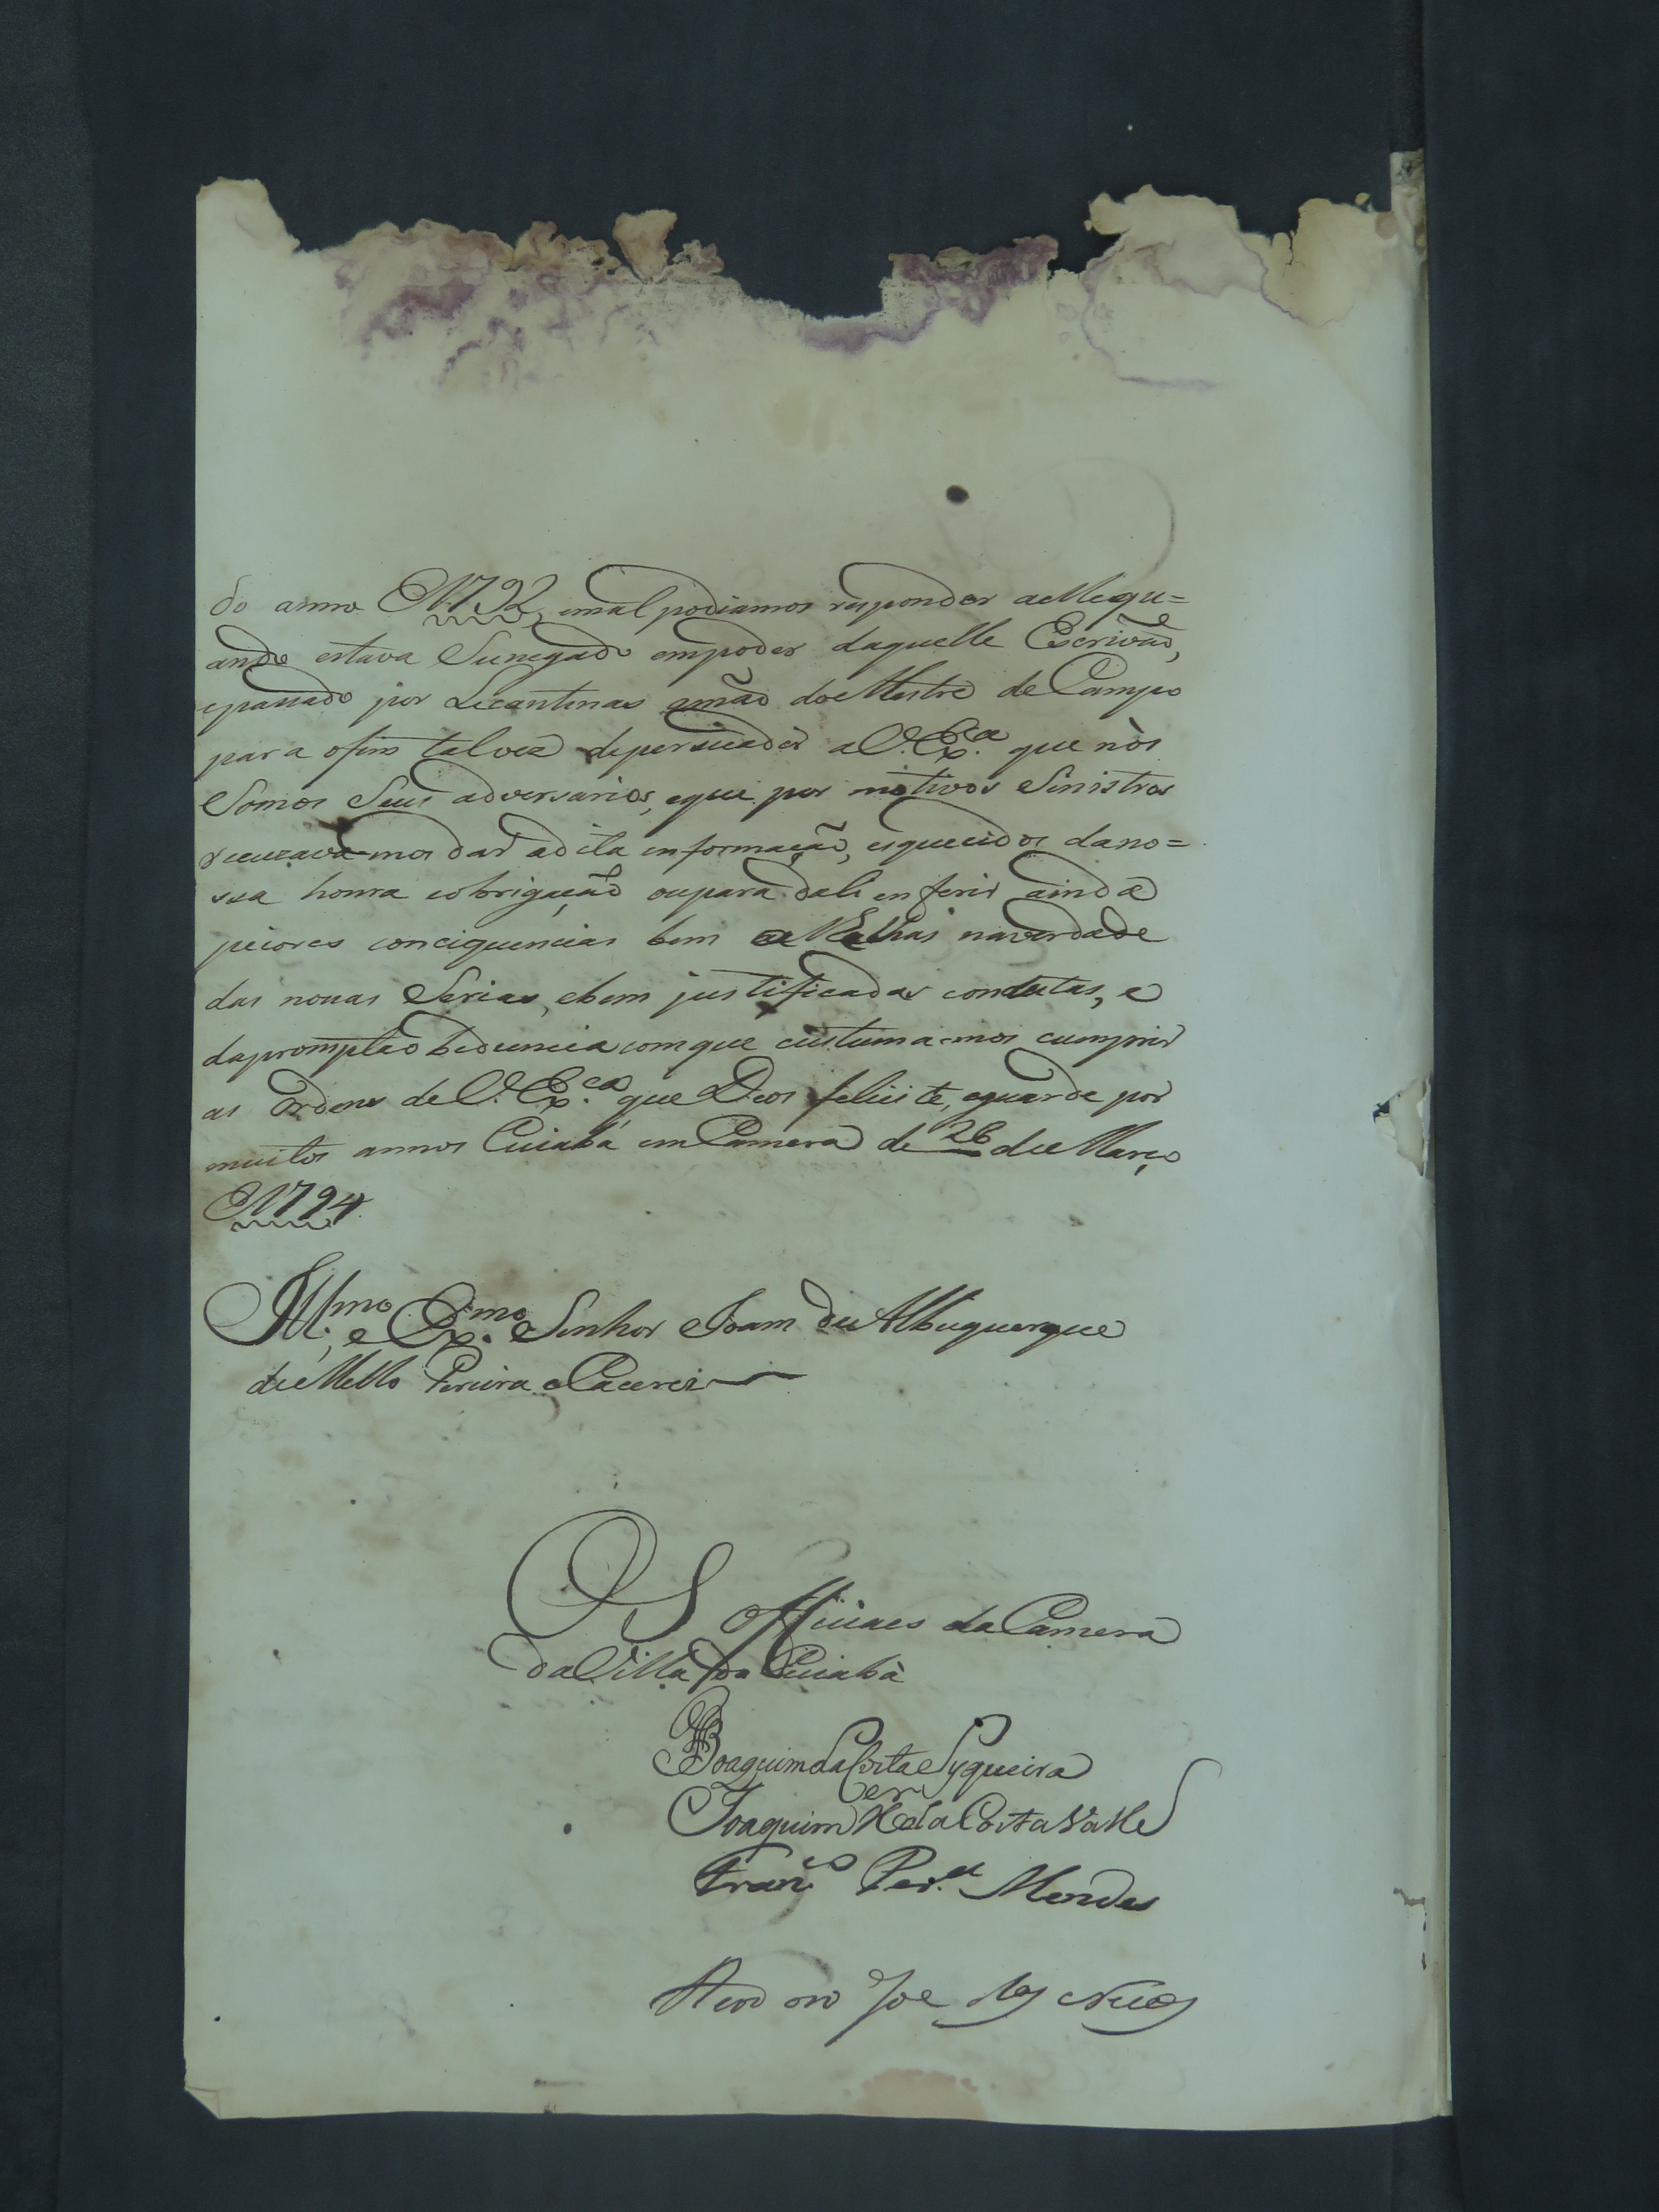 do anno 1792, emal podiamos responder aelle qu=
ando estava Sunegado empoder daquelle Escrivaõ,
epassado por Licantinas amaõ doMestre de Campo
para ofim talvez depersuadir aV. Ex.ca que nòs
Somos Seus adversarios, eque por motivos Sinistros
recuzava-mos dar adita informaçaõ, esquecidos dano=
ssa honra eobrigaçaõ oupara dali enferir ainda
peiores conciquencias bem alheas naverdade
das nossas Serias, ebem justificadas condutas, e
daprompta obediencia comque custuma-mos cumprir
as Ordens deV. Ex.ca que Deos felicite, eguarde por
muitos annos Cuiabá em Camera de 26 de Março
1794
Ill.mo, e Ex.mo Senhor Joam de Albuquerque
de Mello Pereira eCaceres
OS Officiaes da Camera
da Villa do Cuiabà
Joaquim da Costa Syqueira
Joaquim da Costa Valle
Fran.co Per.a Mendes
Joze